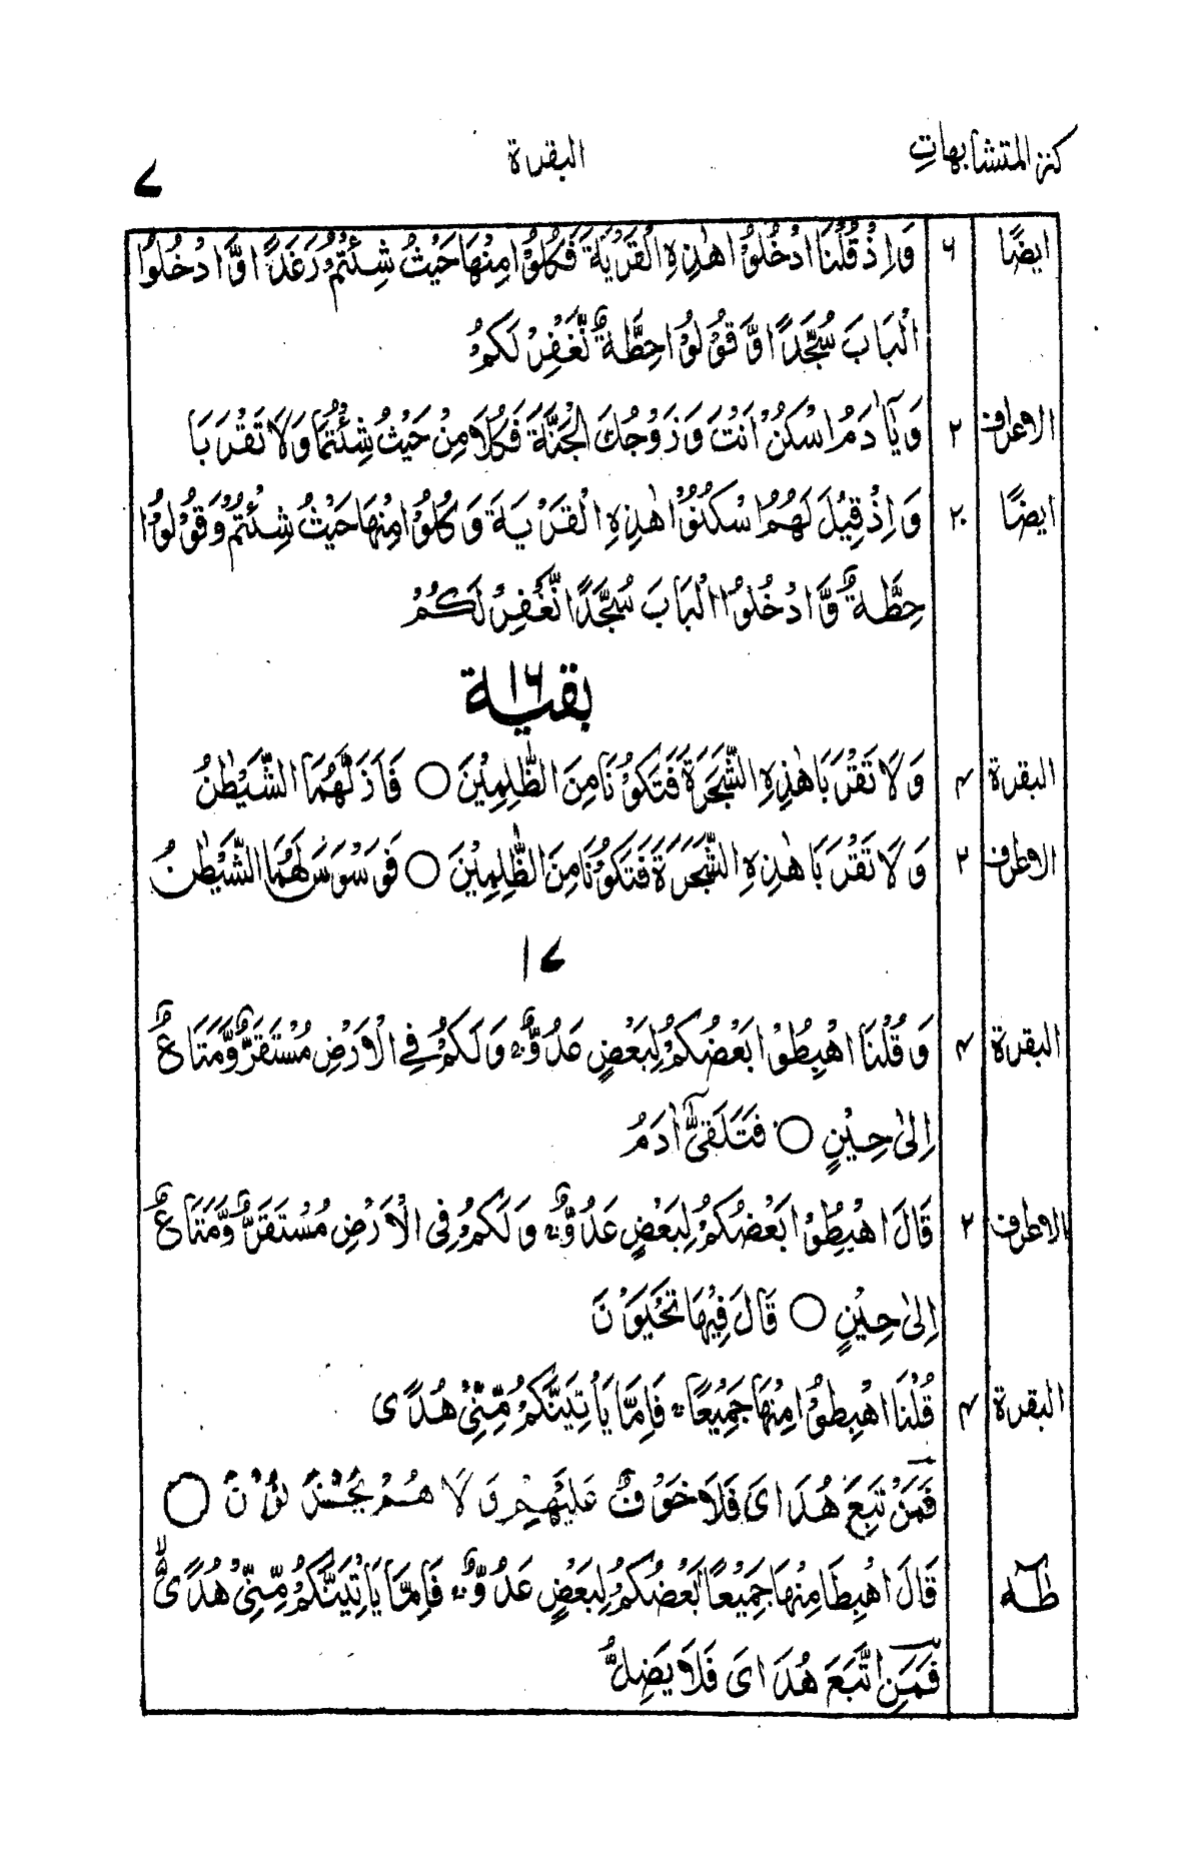 كنز المتشابهاتِ البقرة ٧
ايضًا ٦ وَاِذْ قُلْنَا ادْخُلُوْا هٰذِهِ الْقَرْيَةَ فَكُلُوْا مِنْهَا حَيْثُ شِئْتُمْ رَغَدًا وَّادْخُلُوا
الْبَابَ سُجَّدًا وَّقُوْلُوْا حِطَّةٌ نَّغْفِرْ لَكُمْ
الاعراف ٢ وَيٰٓاٰدَمُ اسْكُنْ اَنْتَ وَزَوْجُكَ الْجَنَّةَ فَكُلَا مِنْ حَيْثُ شِئْتُمَا وَلَا تَقْرَبَا
ايضًا ٢٠ وَاِذْ قِيْلَ لَهُمُ اسْكُنُوْا هٰذِهِ الْقَرْيَةَ وَكُلُوْا مِنْهَا حَيْثُ شِئْتُمْ وَقُوْلُوْا
حِطَّةٌ وَّادْخُلُوا الْبَابَ سُجَّدًا نَّغْفِرْ لَكُمْ
بقية ١٦
البقرة ٤ وَلَا تَقْرَبَا هٰذِهِ الشَّجَرَةَ فَتَكُوْنَا مِنَ الظّٰلِمِيْنَ ○ فَاَزَلَّهُمَا الشَّيْطٰنُ
الاعراف ٢ وَلَا تَقْرَبَا هٰذِهِ الشَّجَرَةَ فَتَكُوْنَا مِنَ الظّٰلِمِيْنَ ○ فَوَسْوَسَ لَهُمَا الشَّيْطٰنُ
١٧
البقرة ٤ وَقُلْنَا اهْبِطُوْا بَعْضُكُمْ لِبَعْضٍ عَدُوٌّ وَلَكُمْ فِي الْاَرْضِ مُسْتَقَرٌّ وَّمَتَاعٌ
اِلٰى حِيْنٍ ○ فَتَلَقّٰٓى اٰدَمُ
الاعراف ٢ قَالَ اهْبِطُوْا بَعْضُكُمْ لِبَعْضٍ عَدُوٌّ وَلَكُمْ فِى الْاَرْضِ مُسْتَقَرٌّ وَّمَتَاعٌ
اِلٰى حِيْنٍ ○ قَالَ فِيْهَا تَحْيَوْنَ
البقرة ٤ قُلْنَا اهْبِطُوْا مِنْهَا جَمِيْعًا فَاِمَّا يَاْتِيَنَّكُمْ مِّنِّىْ هُدًى
فَمَنْ تَبِعَ هُدَاىَ فَلَا خَوْفٌ عَلَيْهِمْ وَلَا هُمْ يَحْزَنُوْنَ ○
طٰهٰ قَالَ اهْبِطَا مِنْهَا جَمِيْعًا بَعْضُكُمْ لِبَعْضٍ عَدُوٌّ فَاِمَّا يَاْتِيَنَّكُمْ مِّنِّىْ هُدًى
فَمَنِ اتَّبَعَ هُدَاىَ فَلَا يَضِلُّ